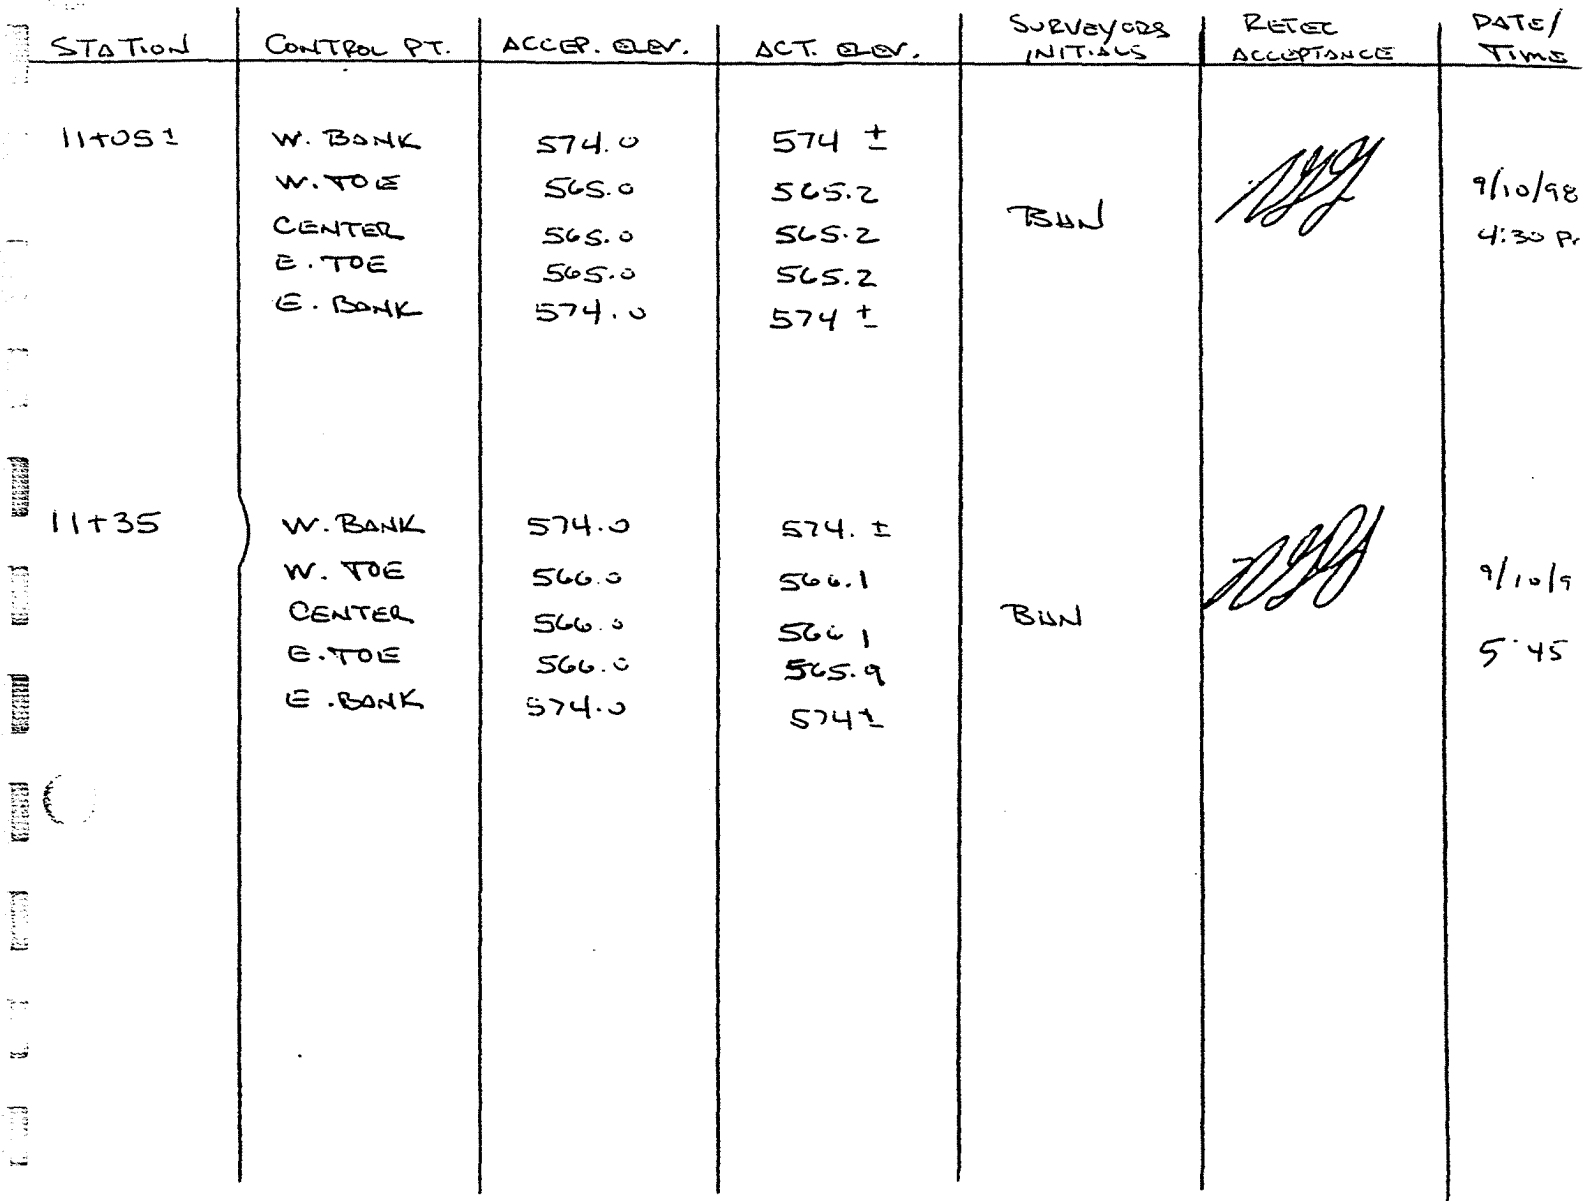 STATION CONTROL PT. ACCEP. ELEV. ACT. ELEV. SURVEYORS INITIALS RETEC ACCEPTANCE DATE/ TIME
11+05± W. BANK 574.0 574 ±
W. TOE 565.0 565.2 9/10/98
CENTER 565.0 565.2 BHN 4:30 P
E. TOE 565.0 565.2
E. BANK 574.0 574 ±
11+35 W. BANK 574.0 574. ±
W. TOE 566.0 566.1 9/10/9
CENTER 566.0 566 1 BHN
E. TOE 566.0 565.9 5 45
E. BANK 574.0 574±